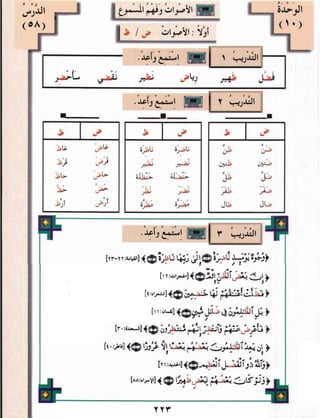 الوحدة
(١٠)
الأصوات وفهم المسموع
أولاً : الأصوات ض / ظ
الدرس
(٥٨)
التدريب ١ استمع وأعد.
فضل ظهير رياض نظير نقضي سأحضر
التدريب ٢ استمع وأعد.
ض ظ ض ظ ض ظ
ضن ظن ناضرة ناظرة غاض غاظ
ضنين ظنين نضير نظير قرض قرظ
ضل ظل حنضلة حنظلة حاض حاظ
ضفر ظفر نضر نظر حض حظ
ضال ظال مضرة مظرة أرض أرظ
التدريب ٣ استمع وأعد.
﴿وُجُوهٌ يَوْمَئِذٍ نَّاضِرَةٌ إِلَىٰ رَبِّهَا نَاظِرَةٌ﴾ [القيامة: ٢٢-٢٣]
﴿إِنَّ بَعْضَ الظَّنِّ إِثْمٌ﴾ [الحجرات: ١٢]
﴿فَظَلَّتْ أَعْنَاقُهُمْ لَهَا خَاضِعِينَ﴾ [الشعراء: ٤]
﴿بَلِ الظَّالِمُونَ فِي ضَلَالٍ مُّبِينٍ﴾ [لقمان: ١١]
﴿فَأَعْرِضْ عَنْهُمْ وَانتَظِرْ إِنَّهُم مُّنتَظِرُونَ﴾ [السجدة: ٣٠]
﴿إِن يَعِدُ الظَّالِمُونَ بَعْضُهُم بَعْضًا إِلَّا غُرُورًا﴾ [فاطر: ٤٠]
﴿وَاللَّهُ ذُو الْفَضْلِ الْعَظِيمِ﴾ [الحديد: ٢١]
﴿وَلَوْ كَانَ بَعْضُهُمْ لِبَعْضٍ ظَهِيرًا﴾ [الإسراء: ٨٨]
٢٢٣